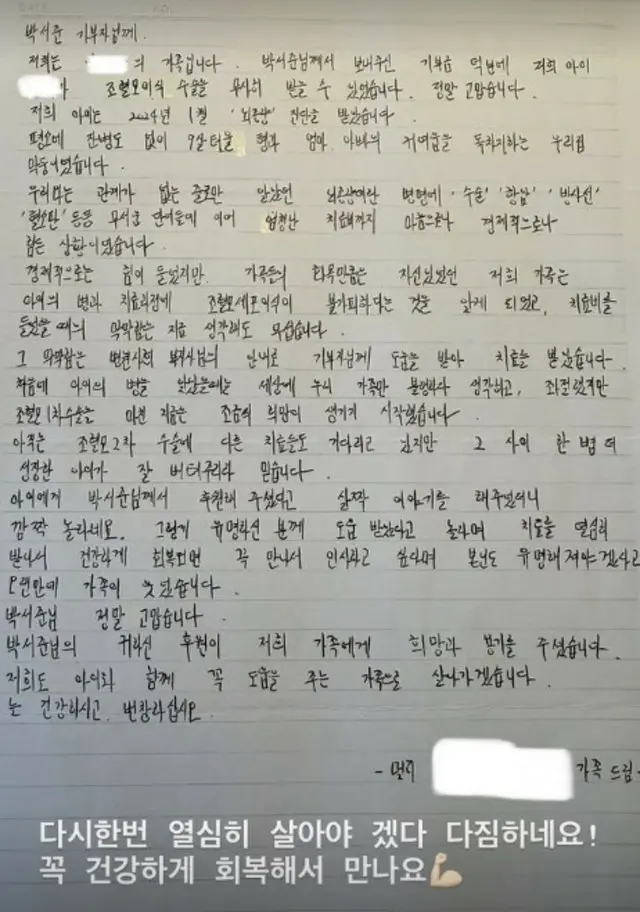 박서준 기부자님께.
저희는 의 가족입니다. 박서준님께서 보내주신 기부금 덕분에 저희 아이
가 조혈모이식 수술을 무사히 받을 수 있었습니다. 정말 고맙습니다.
저희 아이는 2024년 1월 '뇌종양' 진단을 받았습니다.
평소에 잔병도 없이 9살 터울 형과 엄마 아빠의 귀여움을 독차지하는 우리집
막둥이였습니다.
우리와는 관계가 없는 줄로만 알았던 뇌종양이란 병명에 '수술' '항암' '방사선'
'혈소판' 등등 무서운 단어들에 이어 엄청난 치료비까지 마음으로나 경제적으로나
힘든 상황이였습니다.
경제적으로는 힘이 들었지만 가족들의 화목만큼은 자신있었던 저희 가족은
아이의 병과 치료과정에 조혈모세포이식이 불가피하다는 것을 알게 되었고, 치료비를
들었을 때의 막막함은 지금 생각해도 무섭습니다.
그 막막함은 병원사회복지사님의 안내로 기부자님께 도움을 받아 치료를 받았습니다.
처음에 아이의 병을 알았을때에는 세상에 우리 가족만 불행하다 생각하고, 좌절했지만
조혈모1차수술을 마친 지금은 조금의 희망이 생기기 시작했습니다.
아직은 조혈모2차 수술에 다른 치료들도 기다리고 있지만 그 사이 한 뼘 더
성장한 아이가 잘 버텨주리라 믿습니다.
아이에게 박서준님께서 후원해 주셨다고 살짝 이야기를 해주었더니
깜짝 놀라네요. 그렇게 유명하신 분께 도움 받았다고 놀라며 치료를 열심히
받아서 건강하게 회복되면 꼭 만나서 인사하고 싶다며 본인도 유명해져야겠다고
오랜만에 가족이 웃었습니다.
박서준님 정말 고맙습니다.
박서준님의 귀하신 후원이 저희 가족에게 희망과 용기를 주셨습니다.
저희도 아이와 함께 꼭 도움을 주는 가족으로 살아가겠습니다.
늘 건강하시고, 번창하십시오.
- 멀리 가족 드림 -
다시한번 열심히 살아야 겠다 다짐하네요!
꼭 건강하게 회복해서 만나요💪🏻